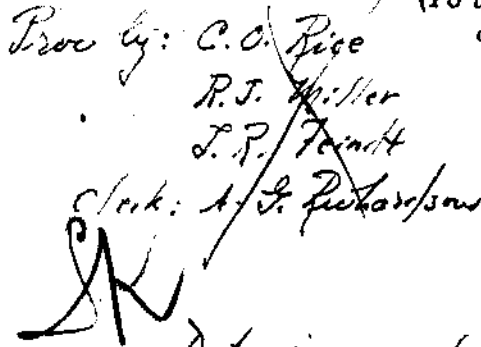 Proc by: C.O. Rice
R.J. Miller
J.R. Feindt
Clerk: A.G. Richardson